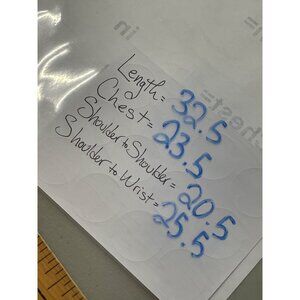 Length = 32.5
Chest = 23.5
Shoulder to Shoulder = 20.5
Shoulder to Wrist = 25.5
in
chest=